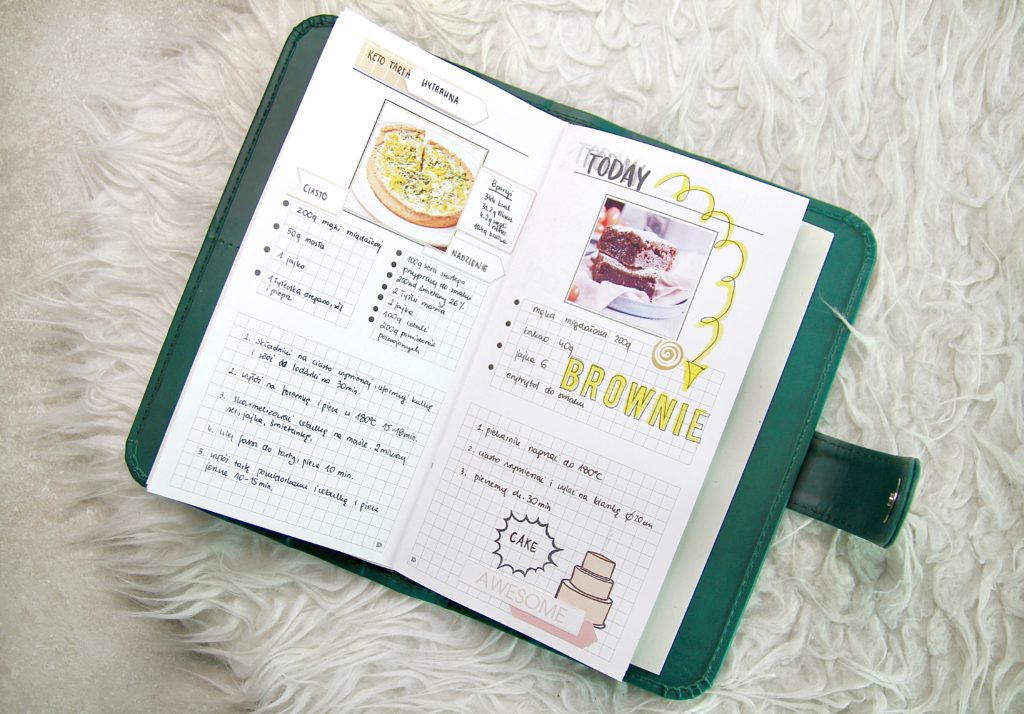 KETO TARTA WYTRAWNA
CIASTO
200g mąki migdałowej
50g masła
1 jajko
1 łyżeczka oregano, sól
i pieprz
Porcji
NADZIENIE
100g sera startego
przyprawy do smaku
200ml śmietany 36%
2 łyżki masła
2 jajka
100g cebuli
200g pomidorów
1. Składniki na ciasto wymieszaj, uformuj kulkę
i włóż do lodówki na 30min.
2. wyłóż na foremkę i piecz w 180°C 15-18min.
3. cebulkę na maśle 2 minuty
ser, jajka, śmietankę,
4. wlej farsz do tarty, piecz 10 min.
5. wyłóż tartę pomidorkami i cebulką i piecz
10-15min.
TODAY
mąka migdałowa 200g
kakao 40g
jajka 6
erytrytol do smaku
BROWNIE
1. piekarnik nagrzać do 180°C
2. ciasto wymieszać i wylać na blaszkę ∅20cm
3. pieczemy ok. 30min
CAKE
AWESOME